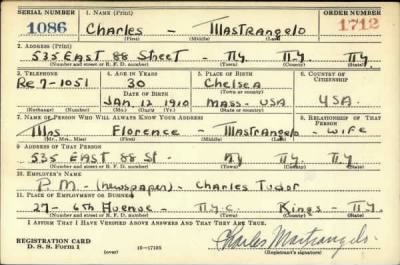 SERIAL NUMBER 1. NAME (Print) ORDER NUMBER
1086 Charles — Mastrangelo 1712
(First) (Middle) (Last)
2. ADDRESS (Print)
535 EAST 88 Street - NY. NY. NY.
(Number and street or R. F. D. number) (Town) (County) (State)
3. TELEPHONE 4. AGE IN YEARS 5. PLACE OF BIRTH 6. COUNTRY OF CITIZENSHIP
Re 9-1051 30 Chelsea
DATE OF BIRTH (Town or county)
JAN. 12 1910 MASS - USA USA.
(Exchange) (Number) (Mo.) (Day) (Yr.) (State or country)
7. NAME OF PERSON WHO WILL ALWAYS KNOW YOUR ADDRESS 8. RELATIONSHIP OF THAT PERSON
Mrs Florence - Mastrangelo - WIFE
(Mr., Mrs., Miss) (First) (Middle) (Last)
9. ADDRESS OF THAT PERSON
535 EAST 88 St - NY NY. NY
(Number and street or R. F. D. number) (Town) (County) (State)
10. EMPLOYER'S NAME
P.M. - (newspaper) - Charles Tudor
11. PLACE OF EMPLOYMENT OR BUSINESS
27 - 6th Avenue - N.Y.C. Kings - NY.
(Number and street or R. F. D. number) (Town) (County) (State)
I AFFIRM THAT I HAVE VERIFIED ABOVE ANSWERS AND THAT THEY ARE TRUE.
REGISTRATION CARD
D. S. S. Form 1 16-17105 Charles Mastrangelo
(Registrant's signature)